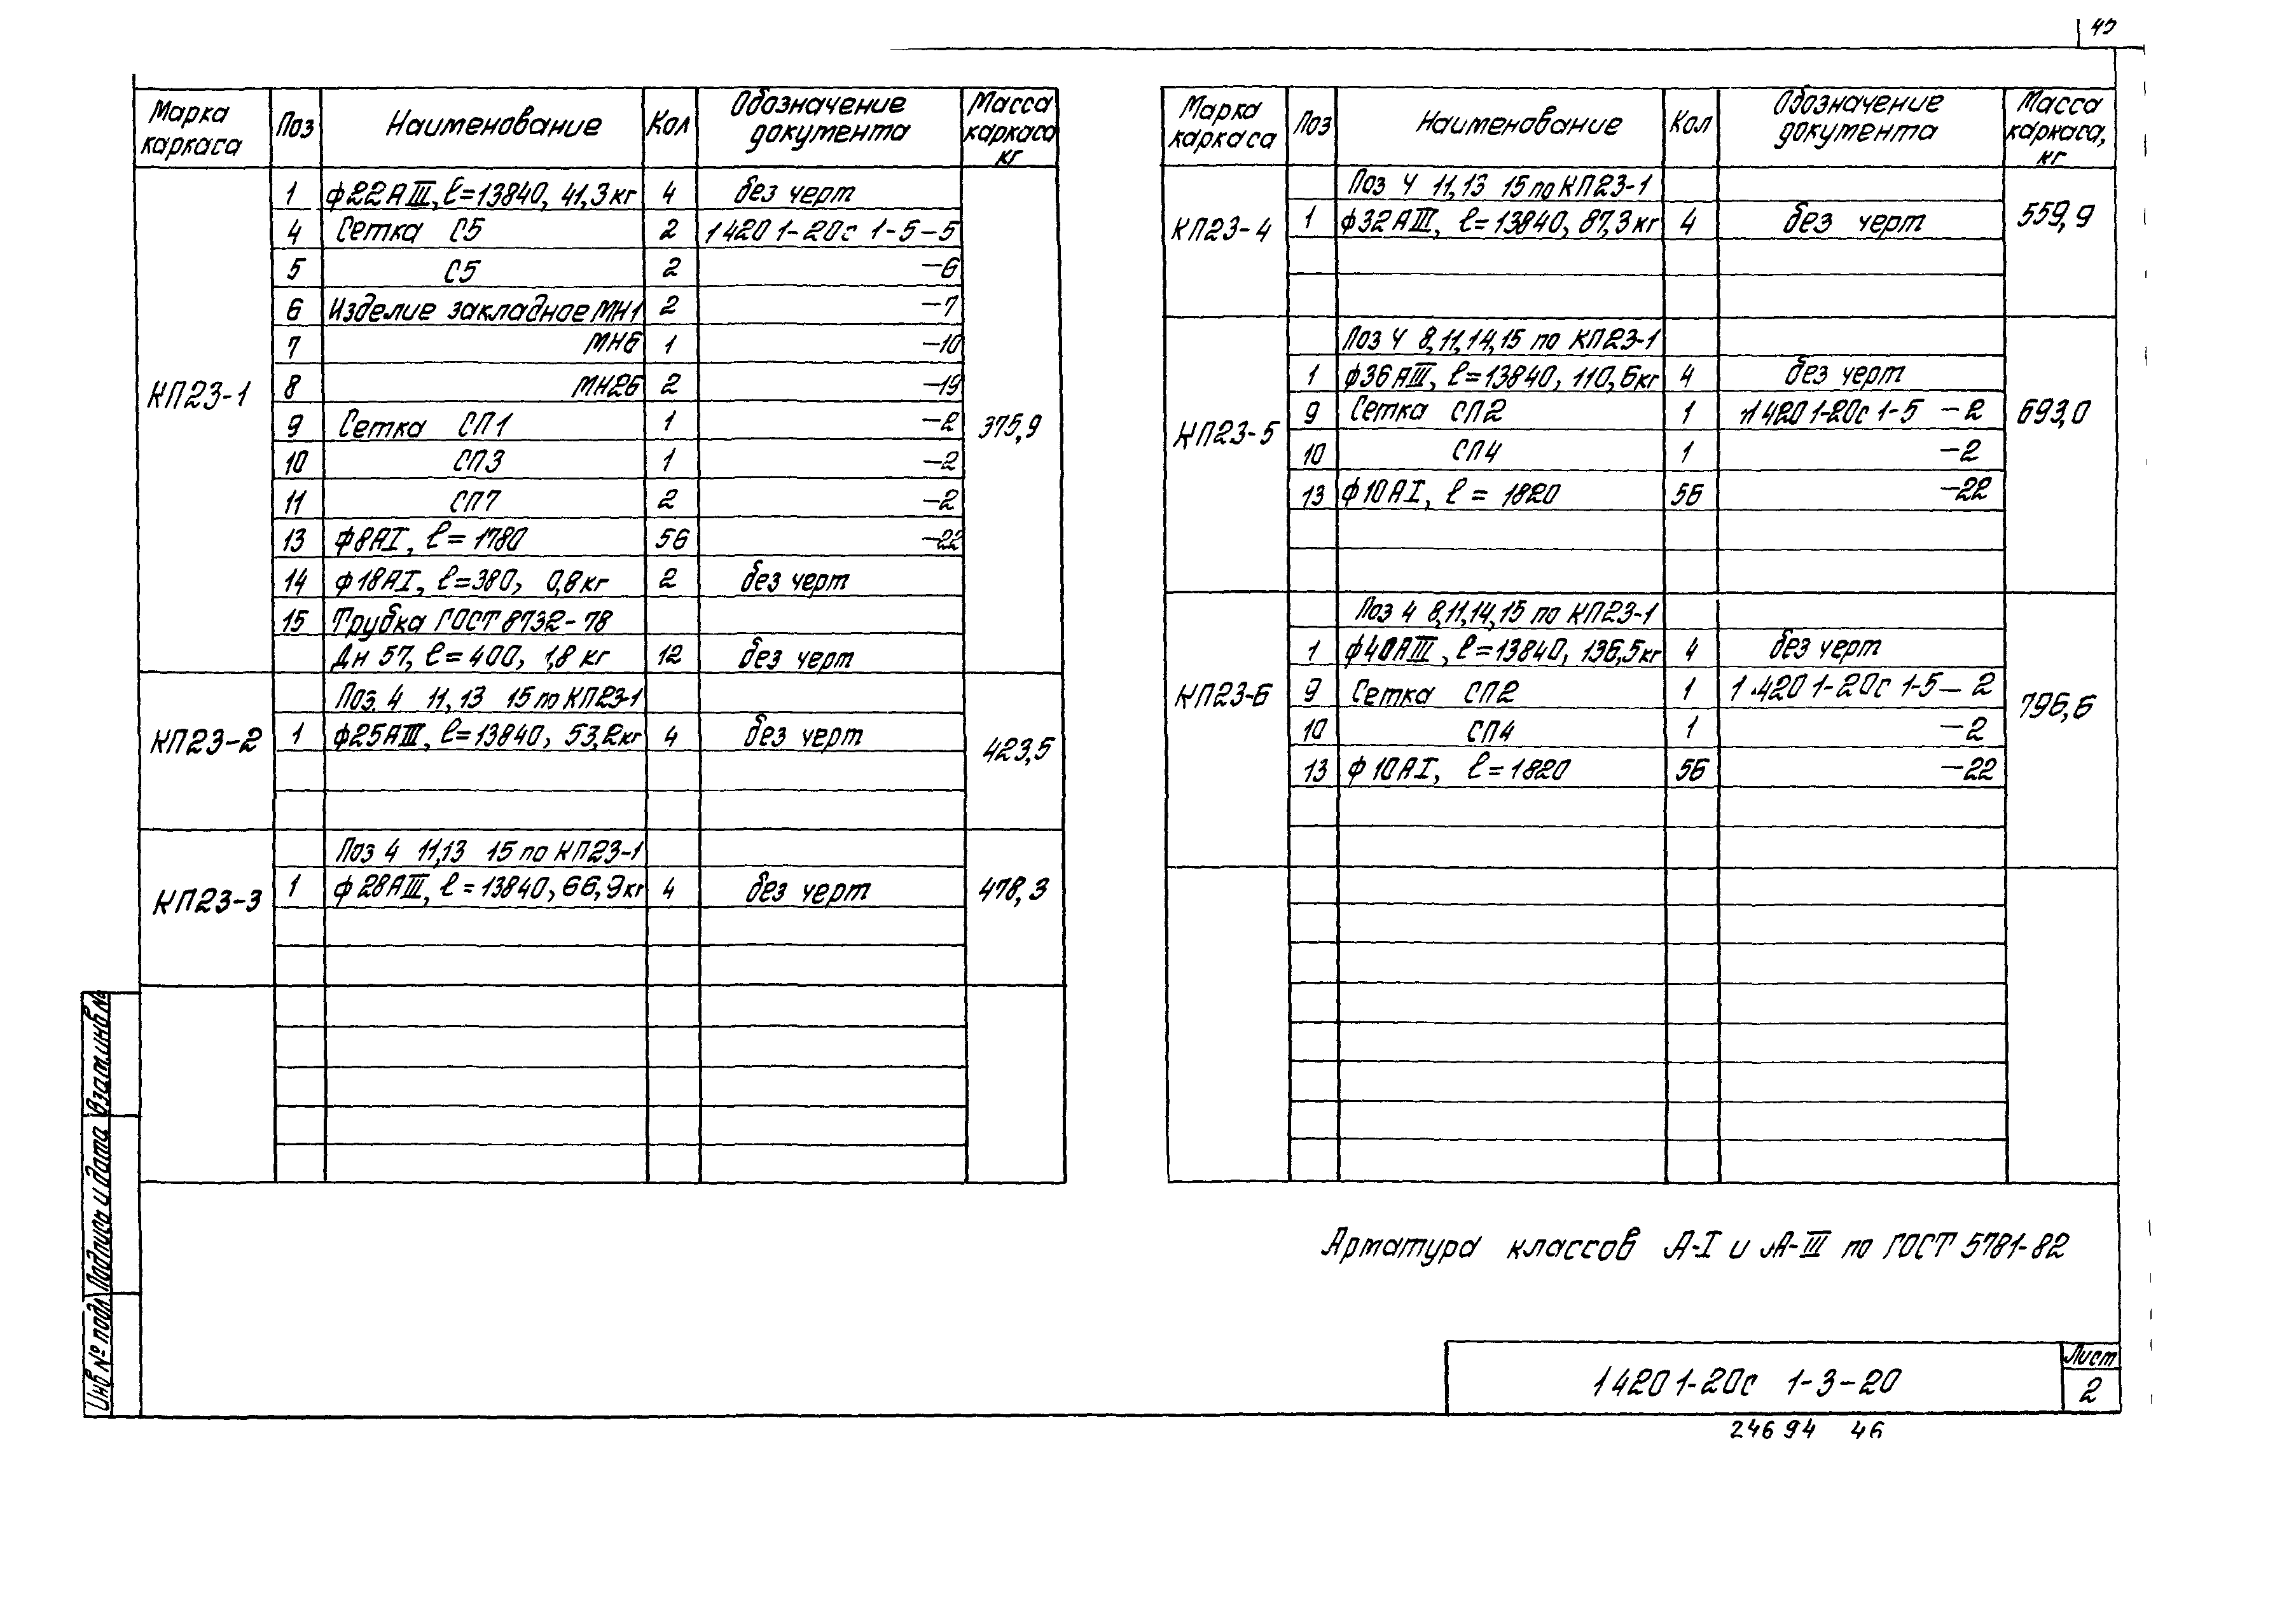 45
Марка каркаса | Поз | Наименование | Кол | Обозначение документа | Масса каркаса кг
КП23-1 | 1 | ф22АIII, ℓ=13840, 41,3кг | 4 | без черт | 375,9
4 | Сетка С5 | 2 | 1 420 1-20с 1-5-5
5 | С5 | 2 | -6
6 | Изделие закладное МН1 | 2 | -7
7 | МН6 | 1 | -10
8 | МН26 | 2 | -19
9 | Сетка СП1 | 1 | -2
10 | СП3 | 1 | -2
11 | СП7 | 2 | -2
13 | ф8АI, ℓ=1780 | 56 | -22
14 | ф18АI, ℓ=380, 0,8кг | 2 | без черт
15 | Трубка ГОСТ 8732-78
Дн 57, ℓ=400, 1,8 кг | 12 | без черт
КП23-2 | Поз. 4 11, 13 15 по КП23-1 | 423,5
1 | ф25АIII, ℓ=13840, 53,2кг | 4 | без черт
КП23-3 | Поз 4 11,13 15 по КП23-1 | 478,3
1 | ф28АIII, ℓ=13840, 66,9кг | 4 | без черт
Марка каркаса | Поз | Наименование | Кол | Обозначение документа | Масса каркаса, кг
КП23-4 | Поз 4 11,13 15 по КП23-1 | 559,9
1 | ф32АIII, ℓ=13840, 87,3кг | 4 | без черт
КП23-5 | Поз 4 8,11,14,15 по КП23-1 | 693,0
1 | ф36АIII, ℓ=13840, 110,6кг | 4 | без черт
9 | Сетка СП2 | 1 | 1 420 1-20с 1-5 -2
10 | СП4 | 1 | -2
13 | ф10АI, ℓ=1820 | 56 | -22
КП23-6 | Поз 4 8,11,14,15 по КП23-1 | 796,6
1 | ф40АIII, ℓ=13840, 136,5кг | 4 | без черт
9 | Сетка СП2 | 1 | 1.420 1-20с 1-5-2
10 | СП4 | 1 | -2
13 | ф10АI, ℓ=1820 | 56 | -22
Арматура классов А-I и А-III по ГОСТ 5781-82
Взам.инв№
Подпись и дата
Инв № подл
1 420 1-20с 1-3-20
Лист
2
24694 46